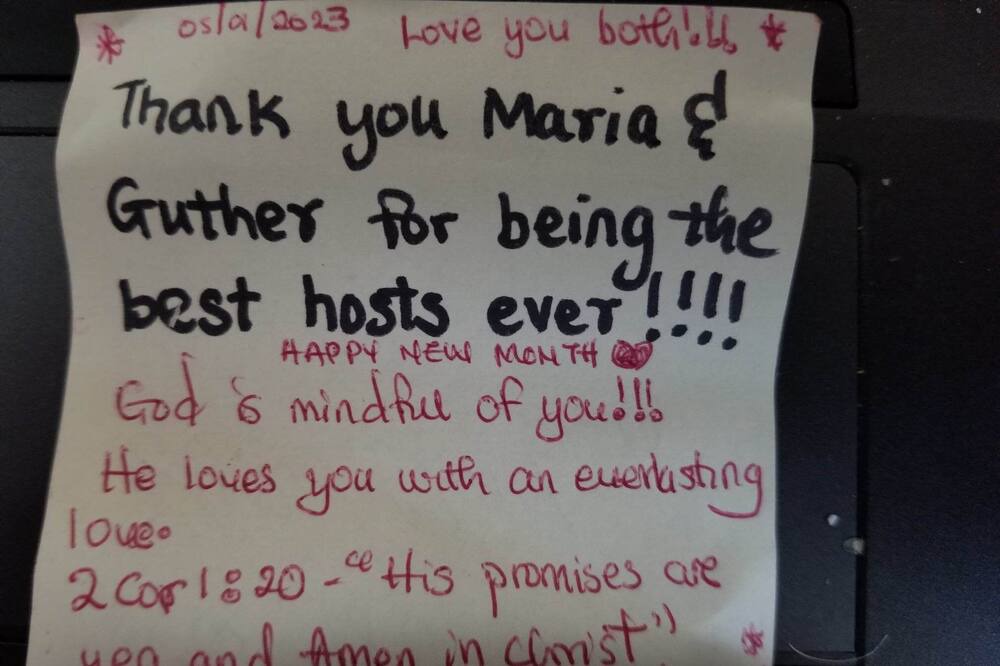 05/9/2023 Love you both!!!
Thank you Maria &
Guther for being the
best hosts ever!!!!
HAPPY NEW MONTH
God is mindful of you!!!
He loves you with an everlasting
love.
2 Cor 1:20 - "His promises are
yea and Amen in Christ"